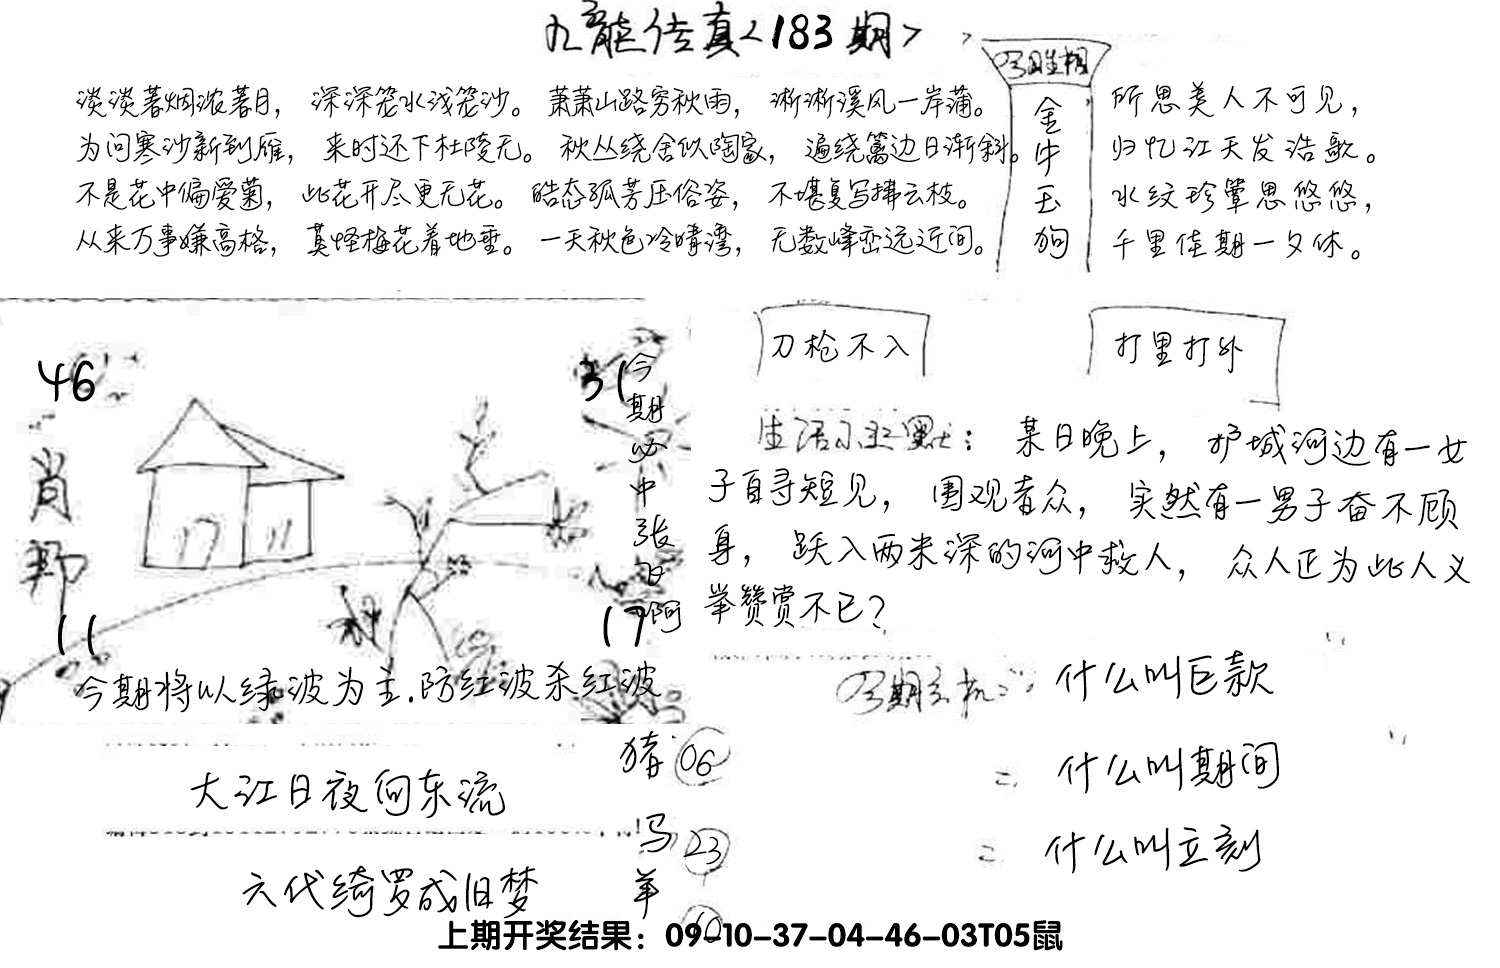 九龙传真<183期>
淡淡著烟浓著月，深深笼水浅笼沙。萧萧山路穷秋雨，淅淅溪风一岸蒲。
为问寒沙新到雁，来时还下杜陵无。秋丛绕舍似陶家，遍绕篱边日渐斜。
不是花中偏爱菊，此花开尽更无花。皓态孤芳压俗姿，不堪复写拂云枝。
从来万事嫌高格，莫怪梅花着地垂。一天秋色冷晴湾，无数峰峦远近间。
金牛玉狗
所思美人不可见，
归忆江天发浩歌。
水纹珍簟思悠悠，
千里佳期一夕休。
46
31
肖
11
17
今期必中张飞阿
今期将以绿波为主.防红波杀红波
刀枪不入
打里打外
生活小幽默：某日晚上，护城河边有一女
子自寻短见，围观者众，突然有一男子奋不顾
身，跃入两米深的河中救人，众人正为此人义
举赞赏不已?
今期玄机：什么叫巨款
什么叫期间
什么叫立刻
猪 06
马 23
羊 10
大江日夜向东流
六代绮罗成旧梦
上期开奖结果：09-10-37-04-46-03T05鼠